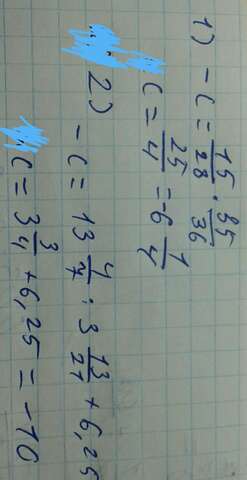 1) -c = 15/28 : 35/36
c = 25/4 = -6 1/4
2) -c = 13 4/7 : 3 13/21 + 6,25
c = 3 3/4 + 6,25 = -10